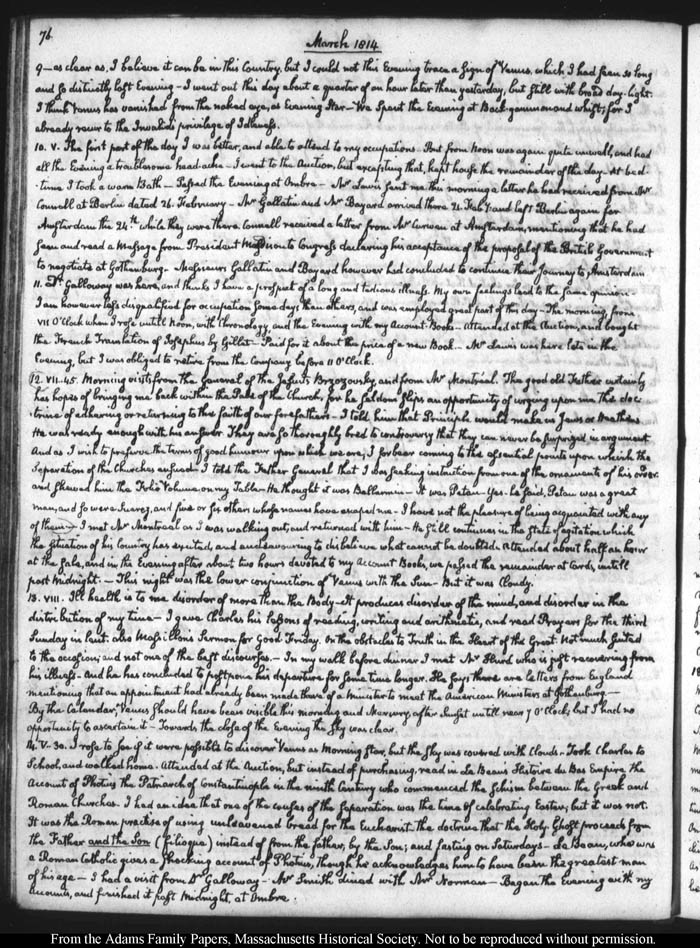 76
March 1814
9 — as clear as, I believe it can be in this Country, but I could not this Evening trace a sign of Venus, which I had seen so long
and so distinctly last Evening — I went out this day about a quarter of an hour later than yesterday, but still with broad day-light.
I think Venus has vanished from the naked eye, as Evening Star — We spent the Evening at Back-gammon and whist; for I
already recur to the Invalid's privilege of Idleness.
10. V. The first part of the day I was better, and able to attend to my occupations. But from Noon was again quite unwell, and had
all the Evening a troublesome head-ache — I went to the Auction, but excepting that, kept house the remainder of the day. At bed-
time I took a warm Bath — Passed the Evening at Ombre — Mr Lewis sent me this morning a letter he had received from Mr
Connell at Berlin dated 26. February — Mr Gallatin and Mr Bayard arrived there 21. Feby and left Berlin again for
Amsterdam the 24th. While they were there, Connell received a letter from Mr Curwen at Amsterdam, mentioning that he had
seen and read a Message from President Madison to Congress declaring his acceptance of the proposal of the British Government
to negotiate at Gothenburg — Messieurs Gallatin and Bayard however had concluded to continue their journey to Amsterdam
11. Dr Galloway was here, and thinks I have a prospect of a long and tedious illness. My own feelings lead to the same opinion —
I am however less disqualified for occupation some days than others, and was employed great part of this day — The morning, from
VII O'Clock when I rose untill Noon, with Chronology, and the Evening with my Account Books — Attended at the Auction, and bought
the French Translation of Josephus by Gillet — Paid for it about the price of a new Book — Mr Lewis was here late in the
Evening, but I was obliged to retire from the Company before 11 O'Clock.
12. VII.45. Morning visits from the General of the Jesuits Brzozowsky, and from Mr Montréal. The good old Father certainly
has hopes of bringing me back within the Pale of the Church, for he seldom slips an opportunity of urging upon me the doc-
trine of adhering or returning to the faith of our forefathers — I told him that Principle would make us Jews or Heathens
He was ready enough with his answer. They are so thoroughly bred to controversy that they can never be surprized in argument
And as I wish to preserve the terms of good humour upon which we are, I forbear coming to the essential points upon which the
Separation of the Churches ensued — I told the Father General that I was seeking instruction from one of the ornaments of his order
and shewed him the Folio Volume on my Table — He thought it was Bellarmin — It was Petau — Yes. he said, Petau was a great
man, and so were Suarez, and five or six others whose names have escaped me — I have not the pleasure of being acquainted with any
of them — I met Mr Montreal as I was walking out, and returned with him — He still continues in the state of agitation which
the situation of his Country has excited, and endeavouring to disbelieve what cannot be doubted. Attended about half an hour
at the Sale, and in the evening after about two hours devoted to my Account Books, we passed the remainder at Cards, untill
past Midnight. — This night was the lower conjunction of Venus with the Sun — But it was Cloudy.
13. VIII. Ill health is to me disorder of more than the Body — It produces disorder of the mind, and disorder in the
distribution of my time — I gave Charles his lessons of reading, writing and arithmetic, and read Prayers for the third
Sunday in Lent. also Massillon's Sermon for Good Friday. On the obstacles to Truth in the Heart of the Great. Not much suited
to the occasion; and not one of the best discourses — In my walk before dinner I met Mr Hurd who is just recovering from
his illness — And he has concluded to postpone his departure for some time longer. He says there are letters from England
mentioning that an appointment had already been made there of a minister to meet the American Ministers at Gothenburg —
By the Calendar, Venus should have been visible this morning and Mercury, after Sunset untill near 7 O'Clock; but I had no
opportunity to ascertain it — Towards the close of the Evening the sky was clear
14. V.30. I rose to see if it were possible to discover Venus as Morning Star, but the sky was covered with Clouds. Took Charles to
School, and walked home. Attended at the Auction, but instead of purchasing, read in Le Beau's Histoire du Bas Empire the
Account of Photius the Patriarch of Constantinople in the ninth Century who commenced the schism between the Greek and
Roman Churches. I had an idea that one of the causes of the separation was the time of celebrating Easter; but it was not.
It was the Roman practise of using unleavened bread for the Eucharist. The doctrine that the Holy Ghost proceeds from
the Father and the Son (filioque) instead of from the father, by the Son; and fasting on Saturdays — Le Beau, who was
a Roman Catholic gives a shocking account of Photius, though he acknowledges him to have been the greatest man
of his age — I had a visit from Dr Galloway — Mr Smith dined with Mr Norman — Began the Evening with my
Accounts, and finished it past Midnight, at Ombre.
From the Adams Family Papers, Massachusetts Historical Society. Not to be reproduced without permission.